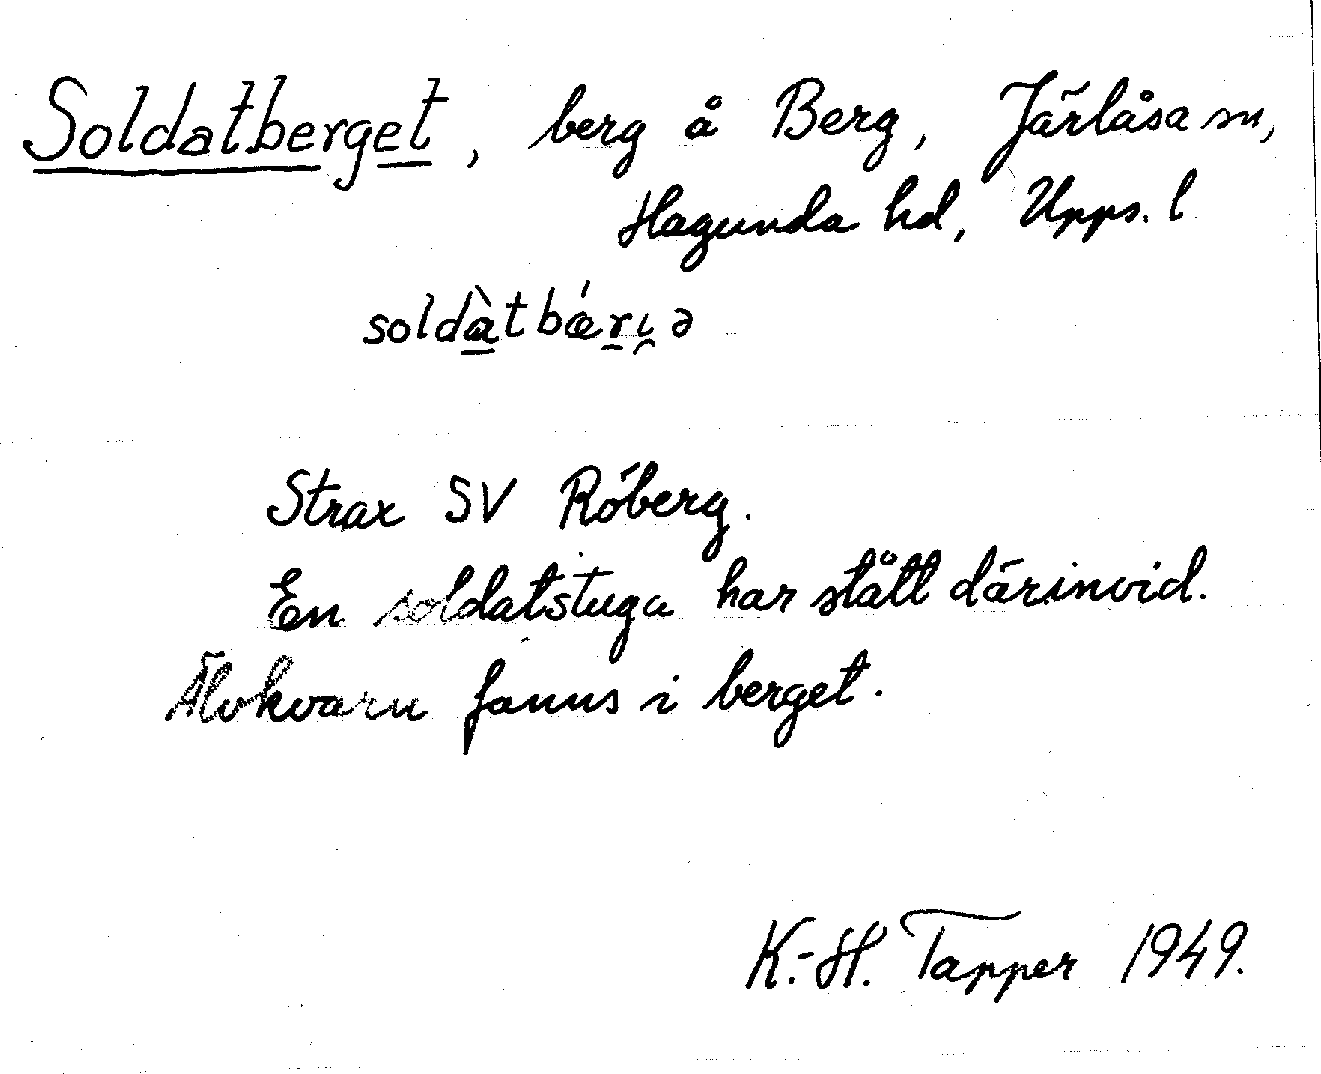 Soldatberget, berg å Berg, Järlåsa sn,
Hagunda hd, Upps. l
soldàtbǽri̯ə
Strax SV Röberg.
En soldatstuga har stått därinvid.
Älvkvarn fanns i berget.
K.-H. Tapper 1949.